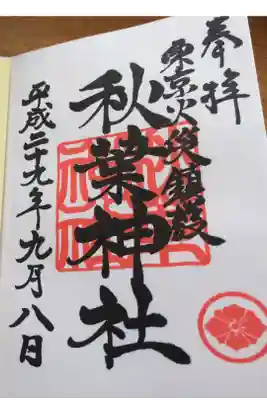 奉拝
東京火災鎮護
秋葉神社
平成二十九年九月八日